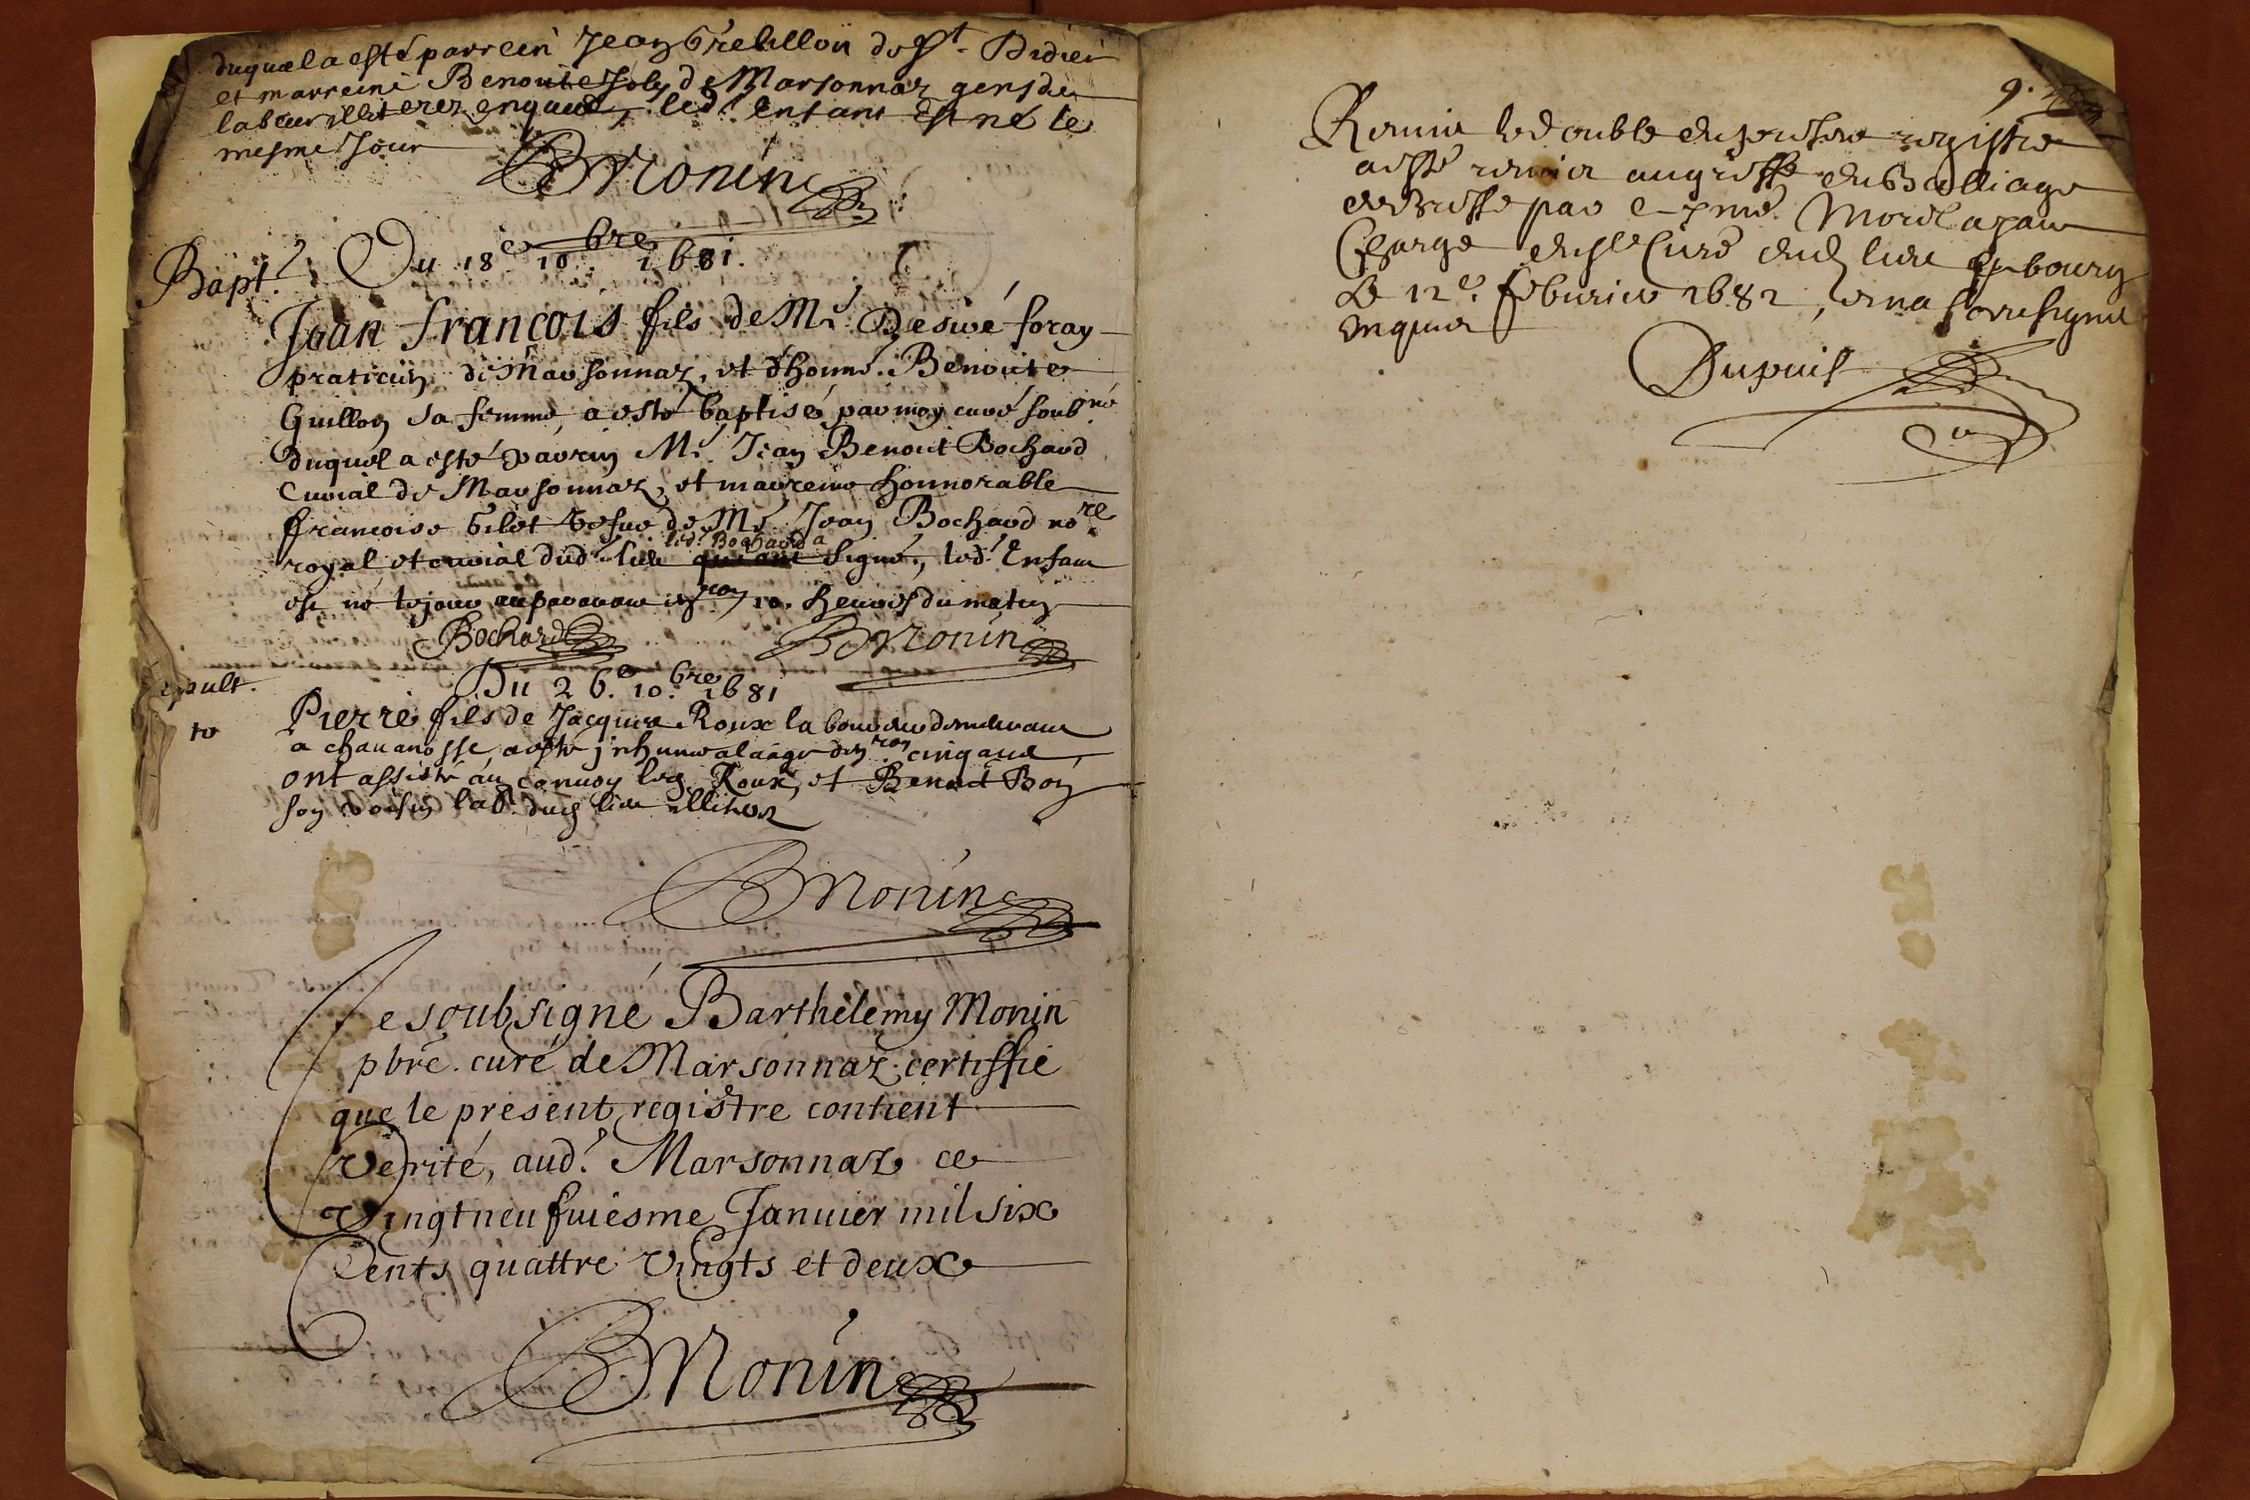 duquel a esté parrein Jean Grebillon de St. Didier
et marreine Benoite Joly de Marsonnaz gens de
labeur illiterez enquis, led. Enfant est né le
mesme Jour
BMonin
Bapt. Du 18e 10bre 1681.
Jean francois fils de Me. Desiré foray
praticien de Marsonnaz, et d'honne. Benoite
Guillon sa femme, a esté baptisé par moy curé soubné
duquel a esté parrin Mr. Jean Benoit Bochard
Curial de Marsonnaz, et marreine honnorable
francoise Gilet vefve de Me. Jean Bochard nore
led. Bochard a
royal et curial dud. lieu qui ont signé, led. Enfant
est né le jour auparavant 10. heures du matin
Bochard BMonin
Sepult. Du 26e. 10bre 1681
re Pierre fils de Jacques Roux laboureur demeurant
a chauanosse a esté inhumé a l'aage d'enron cinq ans
ont assisté au convoy led. Roux, et Benoit Boz
son voisin lab. dud. lieu illiterez
BMonin
Je soubsigné Barthelemy Monin
pbre. curé de Marsonnaz certiffie
que le present registre contient
verité, aud. Marsonnaz ce
vingt neufuiesme Januier mil six
Cents quattre vingts et deux
BMonin
9.
Remis le double du present registre
a esté remis au greffe du Balliage
de Bresse par Morel ayant
Charge du Sr Curé dud. lieu a bourg
Le 12e. feburier 1682, et na soussigné
enquis
Dupuis